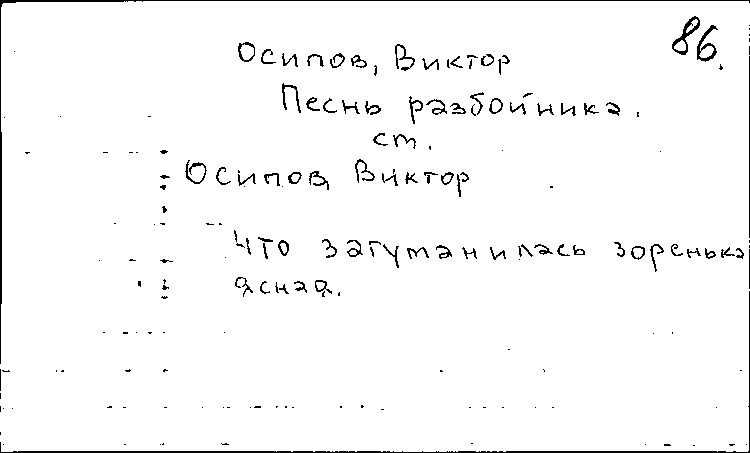 86.
Осипов, Виктор
Песнь разбойника.
ст.
Осипов, Виктор
Что затуманилась зоренька
ясная.